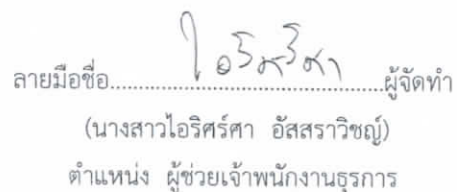 ลายมือชื่อ........ไอริศร์ศา........ผู้จัดทำ
(นางสาวไอริศร์ศา อัสสราวิชญ์)
ตำแหน่ง ผู้ช่วยเจ้าพนักงานธุรการ